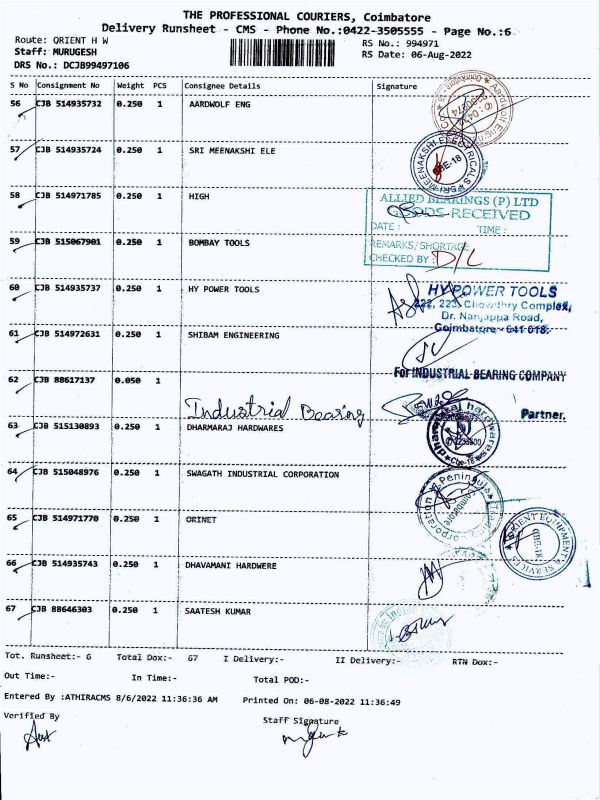 THE PROFESSIONAL COURIERS, Coimbatore
Delivery Runsheet - CMS - Phone No.:0422-3505555 - Page No.:6
Route: ORIENT H W
RS No.: 994971
Staff: MURUGESH
RS Date: 06-Aug-2022
DRS No.: DCJB99497106
S No Consignment No Weight PCS Consignee Details Signature
56 CJB 514935732 0.250 1 AARDWOLF ENG
57 CJB 514935724 0.250 1 SRI MEENAKSHI ELE
CBE-18
58 CJB 514971785 0.250 1 HIGH
ALLIED BEARINGS (P) LTD
GOODS RECEIVED
DATE : TIME :
59 CJB 515067901 0.250 1 BOMBAY TOOLS
REMARKS/SHORTAGE
CHECKED BY : D/L
60 CJB 514935737 0.250 1 HY POWER TOOLS
HY POWER TOOLS
222, 223, Chowthry Complex,
Dr. Nanjappa Road,
Coimbatore - 641 018.
61 CJB 514972631 0.250 1 SHIBAM ENGINEERING
For INDUSTRIAL BEARING COMPANY
62 CJB 88617137 0.050 1
Industrial Bearing
Partner.
63 CJB 515130893 0.250 1 DHARMARAJ HARDWARES
64 CJB 515048976 0.250 1 SWAGATH INDUSTRIAL CORPORATION
65 CJB 514971770 0.250 1 ORINET
ORIENT EQUIPMENT & SERVICES
CBE-18
66 CJB 514935743 0.250 1 DHAVAMANI HARDWERE
67 CJB 88646303 0.250 1 SAATESH KUMAR
Tot. Runsheet:- 6 Total Dox:- 67 I Delivery:- II Delivery:- RTN Dox:-
Out Time:- In Time:- Total POD:-
Entered By :ATHIRACMS 8/6/2022 11:36:36 AM Printed On: 06-08-2022 11:36:49
Verified By Staff Signature